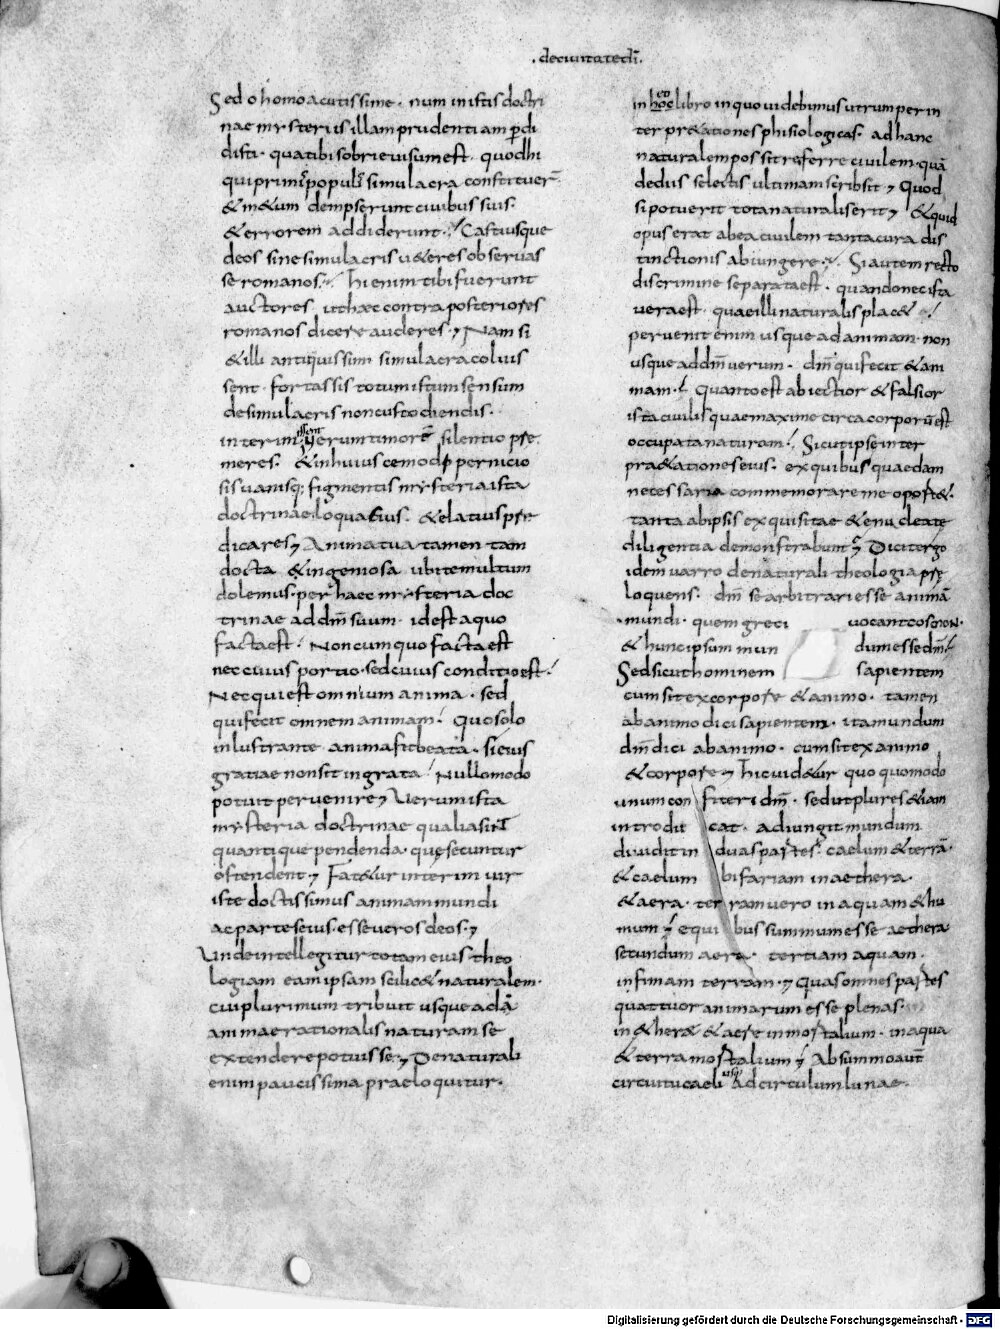 . deciuitatedī .
Sed o homo acutissime · num in istis doctri
nae mysteriis illam prudentiam p̄di
disti · qua tibi sobrie uisum est · quod hi
qui primi populis simulacra constituer̄
& m&um dempserunt ciuibus suis
& errorem addiderunt · Castiusque
deos sine simulacris u&eres obseruas
se romanos · Hi enim tibi fuerunt
auctores · ut haec contra posteriores
romanos dicere auderes · Nam si
& illi antiquissimi simulacra coluis
sent · fortassis totum istum sensum
de simulacris non custodiendis ·
interim essent uerum timorē silentio pre
meres · & in huiuscemodi pernicio
sis uanisq; figmentis mysteria ista
doctrinae loquatius · & elatius pre
dicares Anima tua tamen tam
docta & ingeniosa ubi te multum
dolemus · per haec mysteria doc
trinae ad dm̄ suum · id est a quo
facta est · Non cum quo facta est
nec cuius portio · sed cuius conditio est ·
Nec qui est omnium anima · sed
qui fecit omnem animam · Quo solo
inlustrante anima fit beata · si eius
gratiae non sit ingrata · Nullo modo
potuit peruenire Uerum ista
mysteria doctrinae qualia sint
quantique pendenda · quę secuntur
ostendent Fat&ur interim uir
iste doctissimus animam mundi
ac partes eius · esse ueros deos ·
Unde intellegitur totam eius theo
logiam eam ipsam scilic& naturalem ·
cui plurimum tribuit usque ad a
animae rationalis naturam se
extendere potuisse De naturali
enim paucissima praeloquitur ·
in hoc eo libro in quo uidebimus utrum per in
terpr&ationes phisiologicas · ad hanc
naturalem possit referre ciuilem · quā
de diis selectis ultimam scribsit Quod
si potuerit tota naturalis erit & quid
opus erat ab ea ciuilem tanta cura dis
tinctionis abiungere Si autem recto
discrimine separata est · quando nec ista
uera est · quae illi naturalis plac&
peruenit enim usque ad animam · non
usque ad dm̄ uerum · dm̄ qui fecit & ani
mam · Quanto est abiectior & falsior
ista ciuilis quae maxime circa corporū est
occupata naturam · Sicut ipse inter
pr&atione seius · ex quibus quaedam
necessaria commemorare me oport& ·
tanta ab ipsis exquisitae & enucleate
diligentia demonstrabunt Dicit ergo
idem uarro de naturali theologia pre
loquens · dm̄ se arbitrari esse animā
mundi · quem greci uocant cosmon ·
& hunc ipsum mundum esse dm̄
Sed sicut hominem sapientem
cum sit ex corpore & animo · tamen
ab animo dici sapientem · ita mundum
dm̄ dici ab animo · cum sit ex animo
& corpore Hic uid&ur quoquo modo
unum confiteri dm̄ · sed ut plures &iam
introducat · adiungit mundum
diuidit in duas partes · caelum & terrā ·
& caelum bifariam in aethera ·
& aera · terram uero in aquam & hu
mum e quibus summum esse aethera
secundum aera · tertiam aquam ·
infimam terram · Quas omnes partes
quattuor animarum esse plenas ·
in &hera & aere inmortalium · in aqua
& terra mortalium Ab summo aut̄
circuitu caeli usq; ad circulum lunae ·
Digitalisierung gefördert durch die Deutsche Forschungsgemeinschaft - DFG